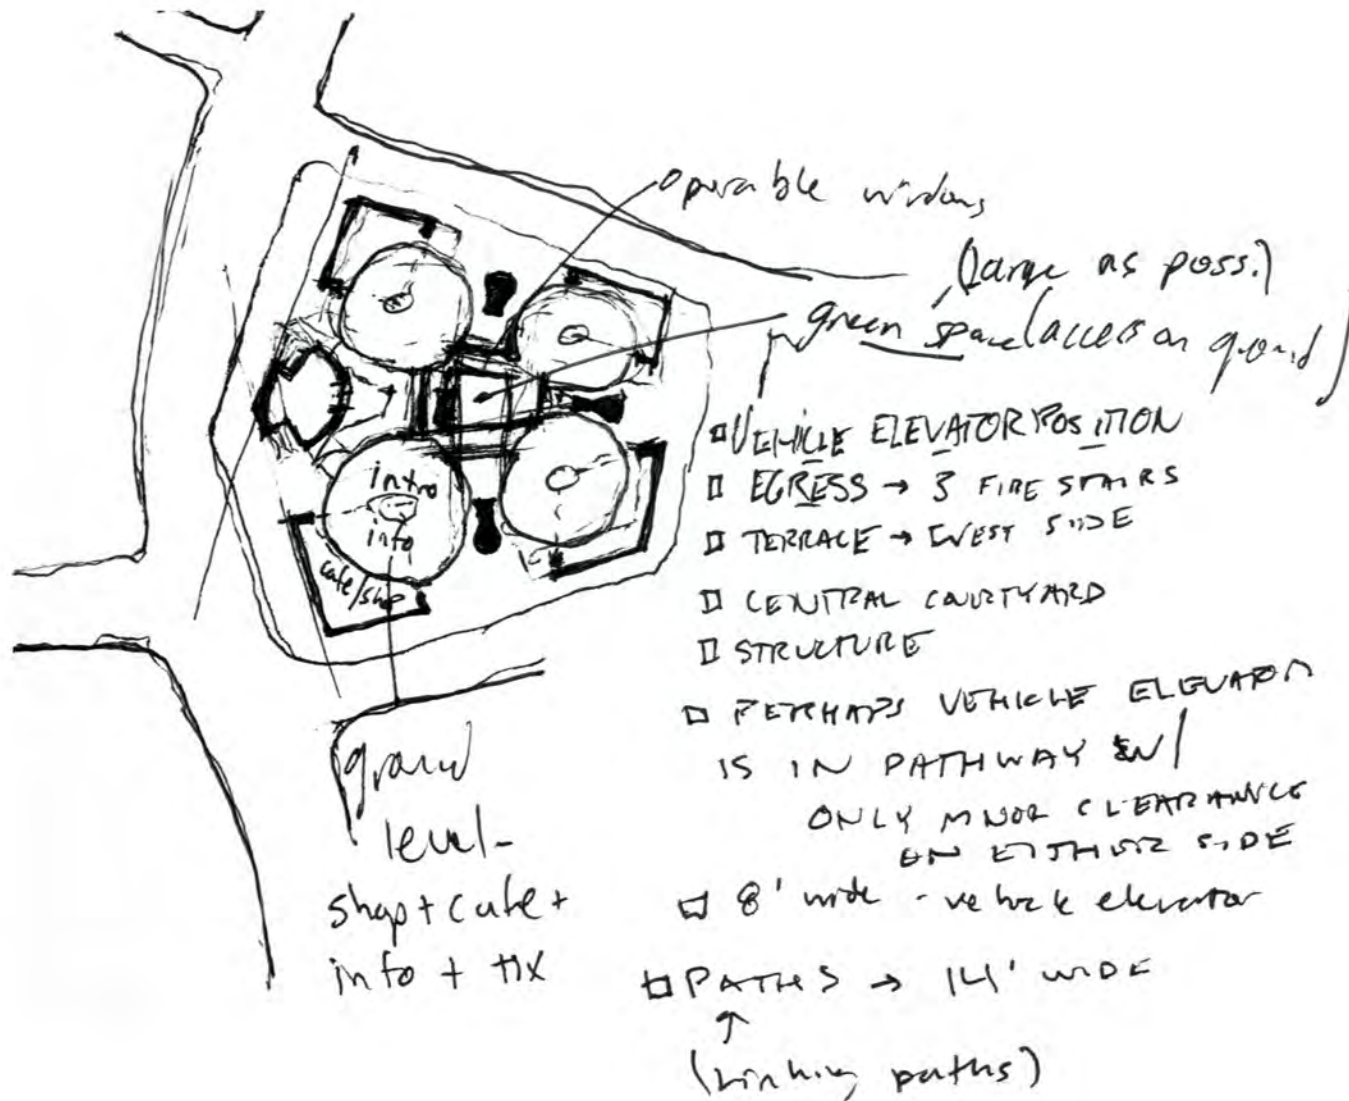 operable windows
(large as poss.)
green space (access on ground)
VEHICLE ELEVATOR POSITION
EGRESS → 3 FIRE STAIRS
TERRACE → WEST SIDE
CENTRAL COURTYARD
STRUCTURE
PERHAPS VEHICLE ELEVATOR
IS IN PATHWAY W/
ONLY MINOR CLEARANCE
ON EITHER SIDE
8' wide - vehicle elevator
PATHS → 14' WIDE
↑
(linking paths)
intro
info
cafe/shop
ground
level-
shop + cafe +
info + tix